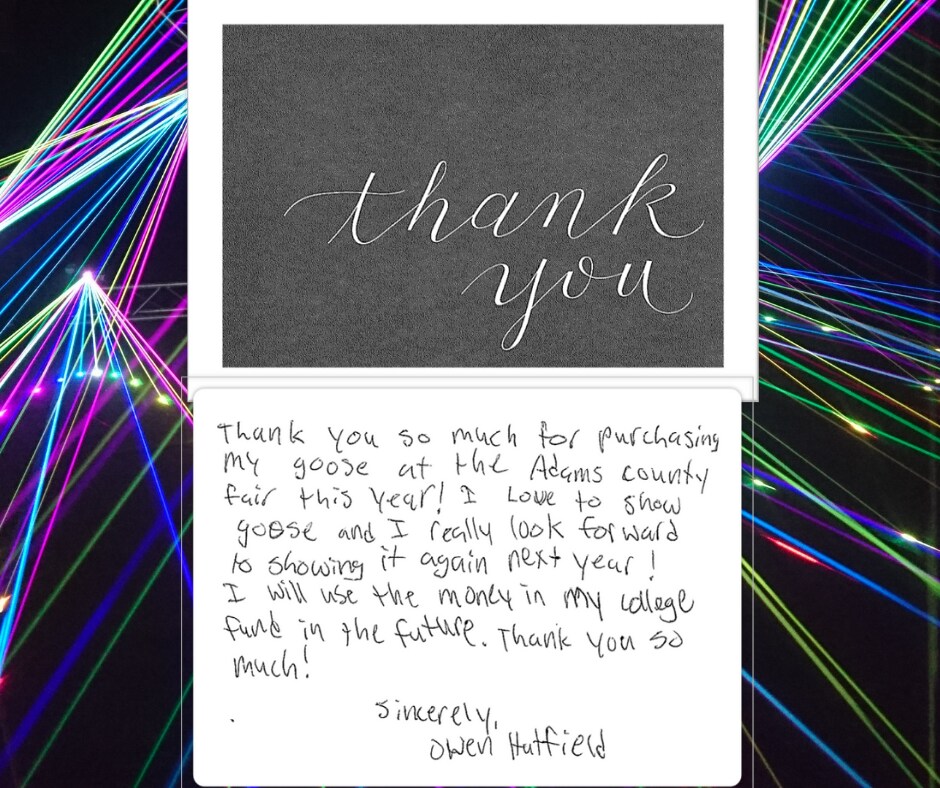 thank
you
Thank you so much for purchasing
my goose at the Adams county
fair this year! I Love to show
goose and I really look forward
to showing it again next year!
I will use the money in my college
fund in the future. Thank you so
much!
Sincerely,
Owen Hatfield